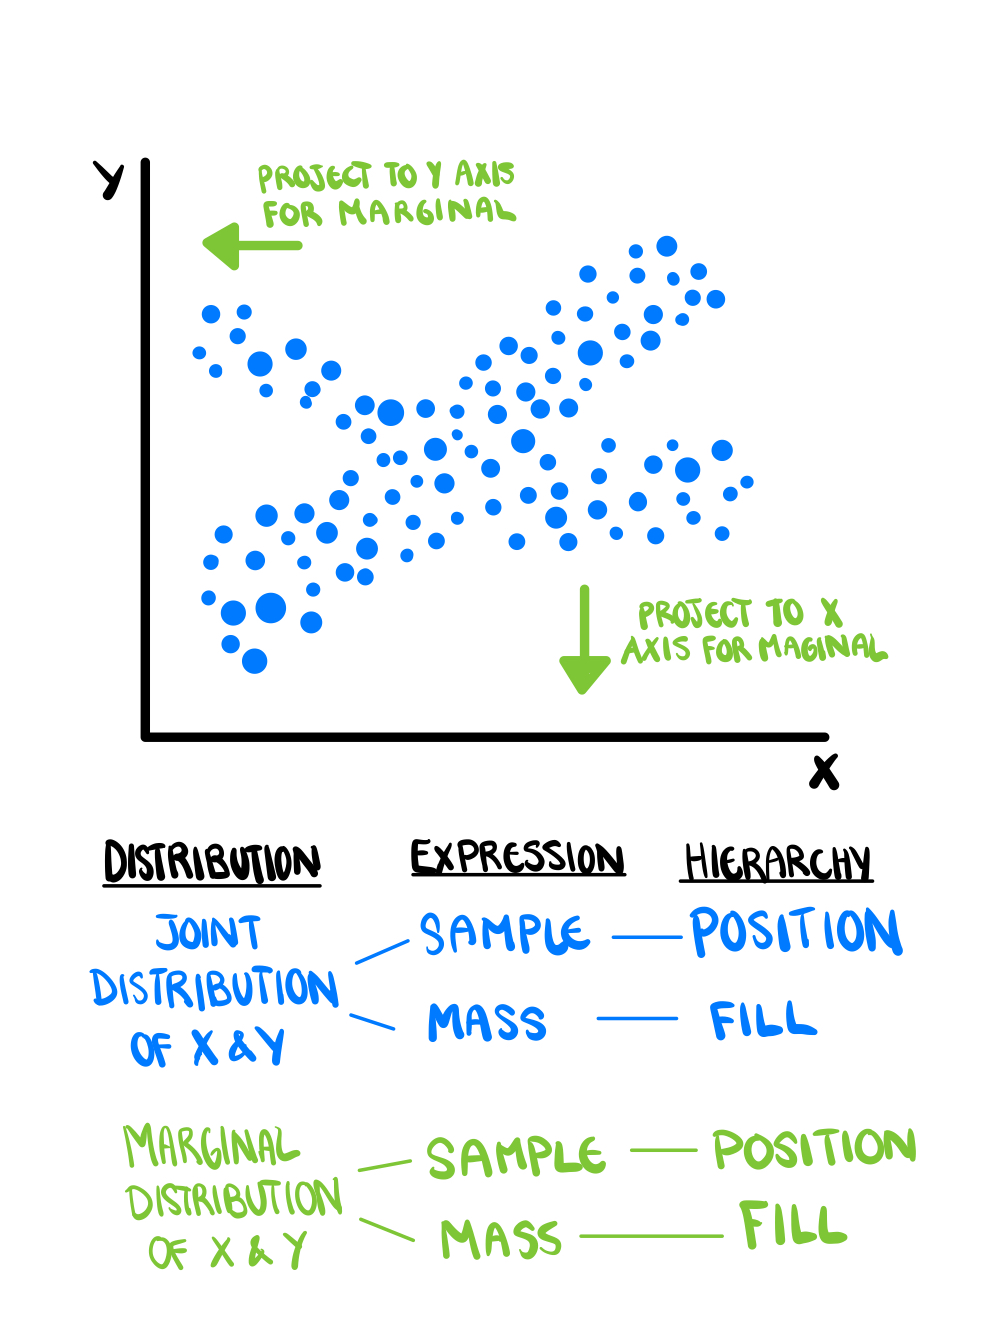 Y
PROJECT TO Y AXIS
FOR MARGINAL
PROJECT TO X
AXIS FOR MAGINAL
X
DISTRIBUTION EXPRESSION HIERARCHY
JOINT
DISTRIBUTION
OF X & Y
SAMPLE POSITION
MASS FILL
MARGINAL
DISTRIBUTION
OF X & Y
SAMPLE POSITION
MASS FILL